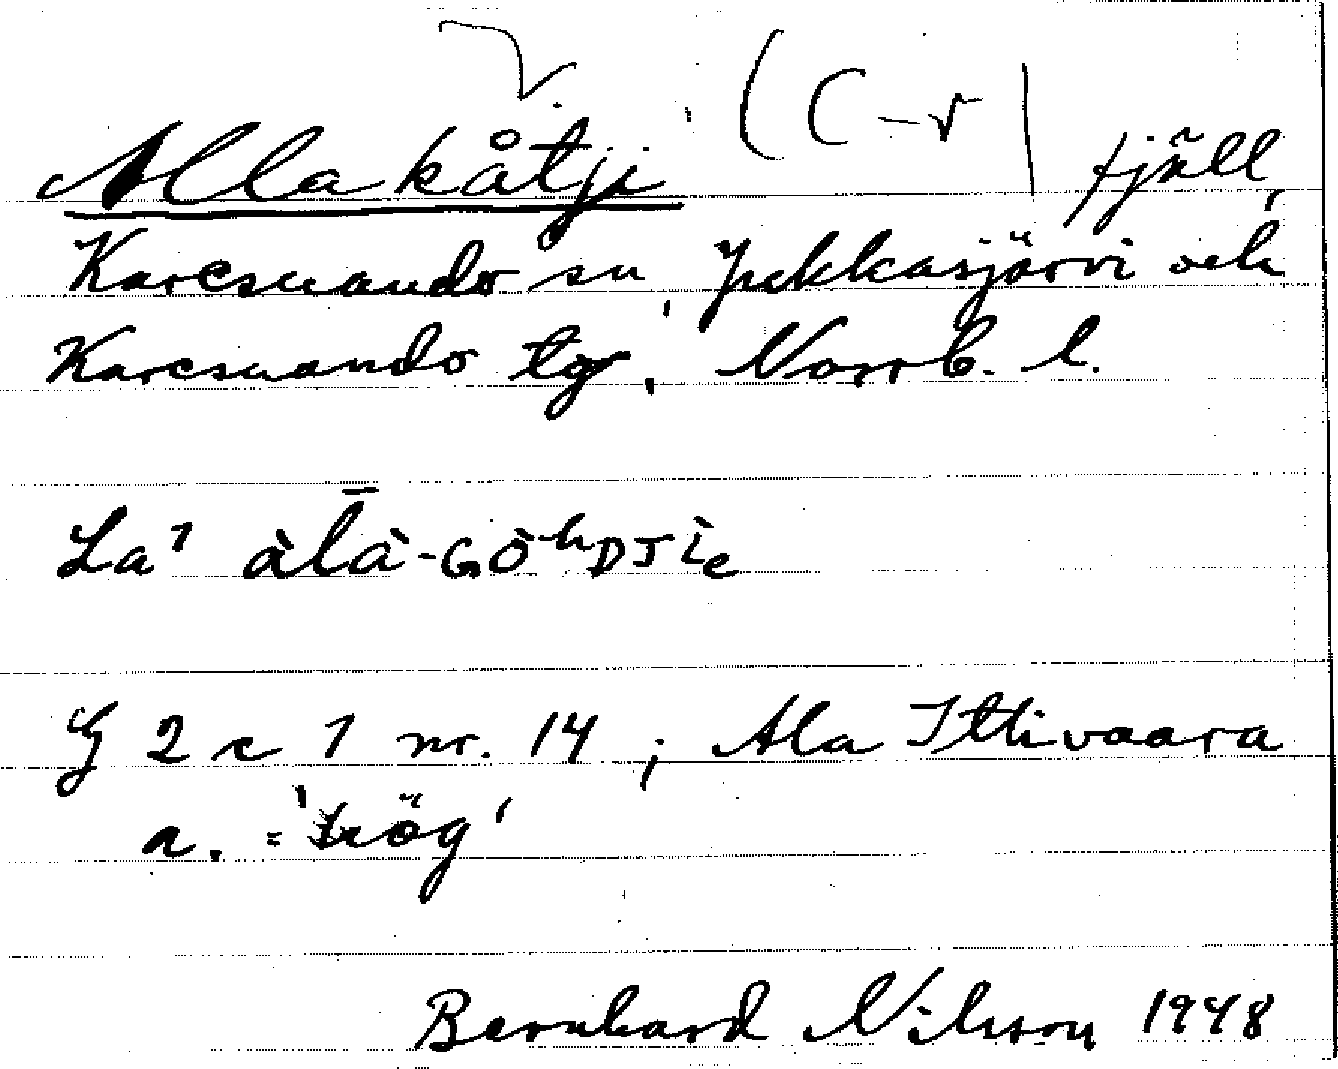 V. (C-v)
Allakåtji fjäll,
Karesuando sn, Jukkasjärvi och
Karesuando tg, Norrb. l.
La¹ àl̄à-Gò-ʰDJìe
G 2 c 1 nr. 14 ; Ala Ittivaara
a. = 'hög'
Bernhard Nilsson 1948